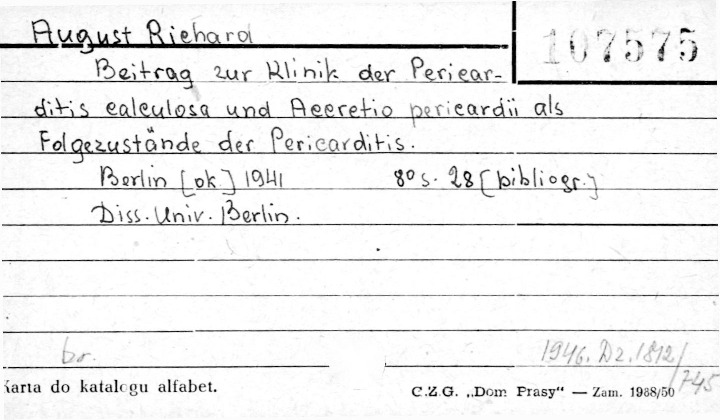 August Richard
107575
Beitrag zur Klinik der Pericar-
ditis calculosa und Accretio pericardii als
Folgezustände der Pericarditis.
Berlin [ok.] 1941 8° s. 28 [bibliogr.]
Diss. Univ. Berlin.
br.
1946. Dz. 1812/745
Karta do katalogu alfabet.
C.Z.G. „Dom Prasy“ — Zam. 1988/50